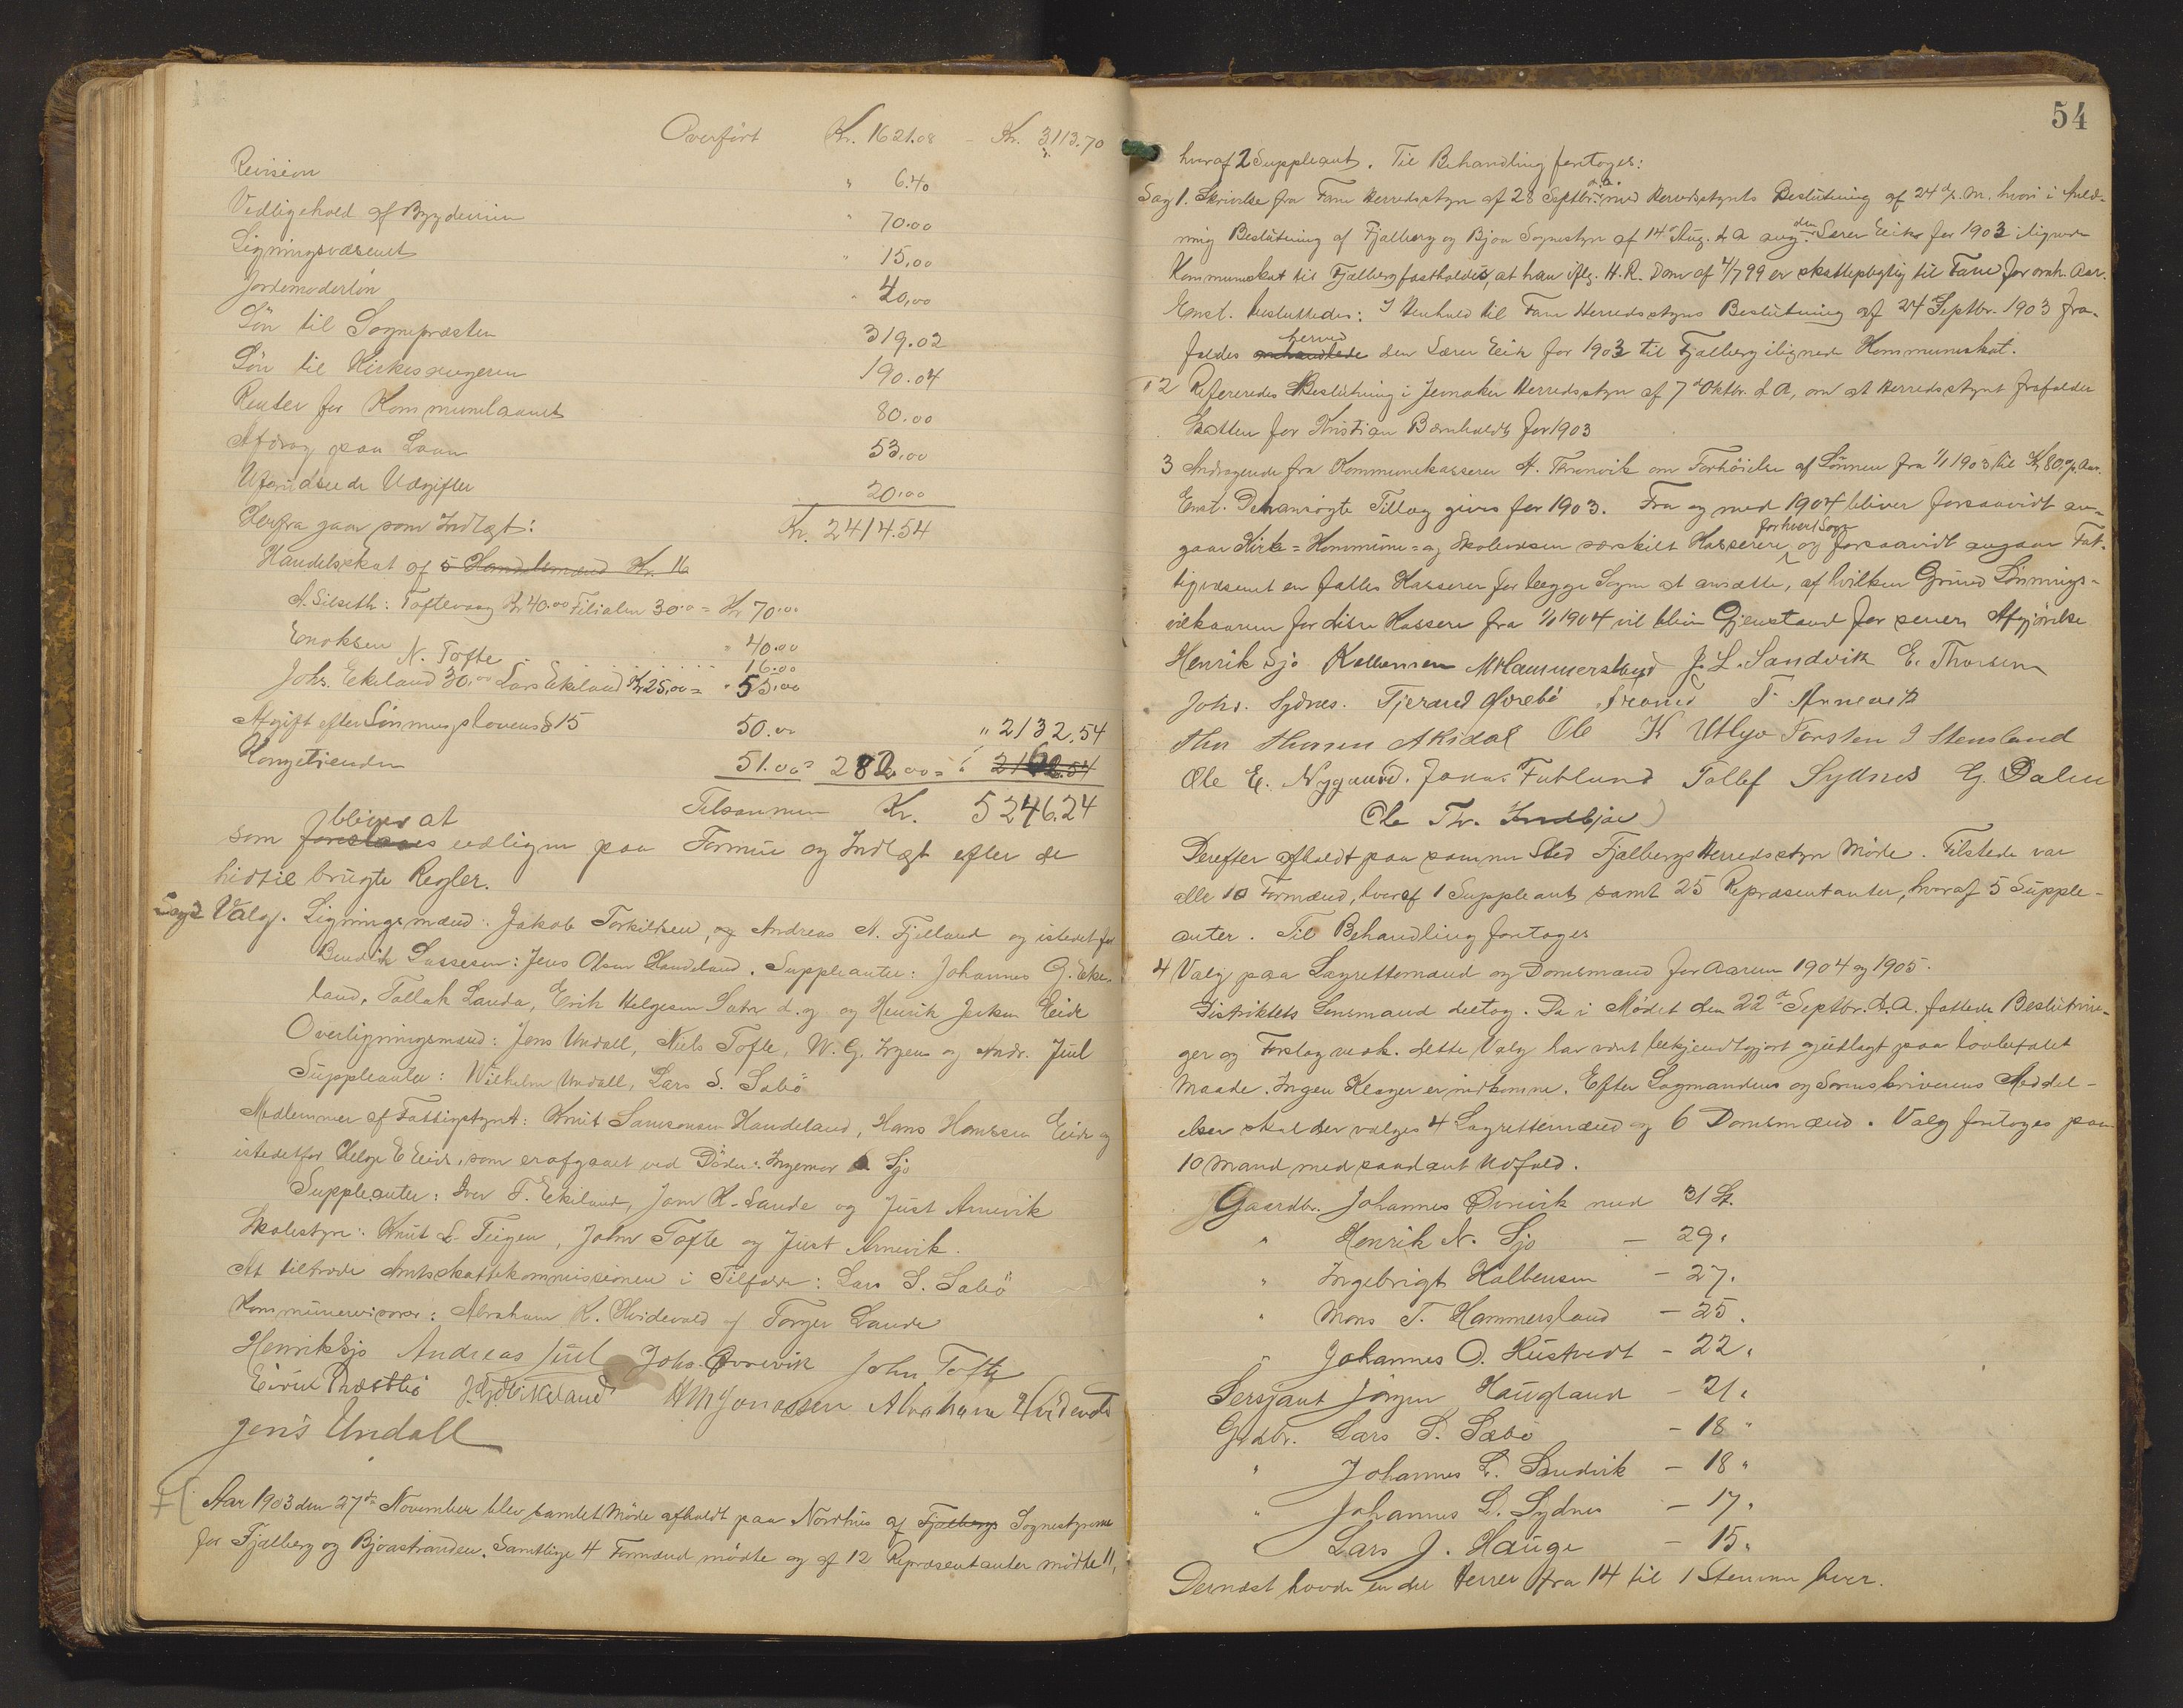 Overført Kr. 1621.08 - Kr. 3113.70
Revision " 6.40
Vedligehold af Bygderne " 70.00
Ligningsvæsenet " 15,00
Jordemoderløn " 40,00
Løn til Sognepræsten 319.02
Løn til Kirkesangeren 190.04
Renter for Kommunelaanet 80.00
Afdrag paa Laan 53,00
Uforudseede Udgifter 20,00
Kr. 2414.54
Herfra gaar som Indtægt:
Handelsskat af 5 Handelsmænd Kr. 16
A. Silseth: Toftevaag Kr 40.00 Filialen 30.00 = Kr 70.00
Enoksen " 40.00
N. Tofte 16.00
Johs. Ekeland 30,00 Lars Ekeland Kr 25,00 = " 55,00
Afgift efter Lønningslovens § 15 50.00 " 2132,54
Kongetienden 51.00 = 282,00 = " 2162.54
Tilsammen Kr. 5246.24
bliver at
som foreslaaes udligne paa Formue og Indtægt efter de
hidtil brugte Regler.
Sag 2 Valg. Ligningsmænd: Jakob Torkildsen, og Andreas A. Fjelland og istedet for
Bendik Lassesen: Jens Olsen Handeland. Suppleanter: Johannes G. Eke-
land, Tallak Landa, Erik Helgesen d. y. og Henrik Eide
Overligningsmænd: Jens Undall, Niels Tofte, W. G. og Andr. Juul
Suppleanter: Wilhelm Undall, Lars S. Sæbö
Medlemmer af Fattigstyret: Knut Samsonsen Handeland, Hans Hanssen Eide og
istedetfor Helge E Eide, som er afgaaet ved Döden: Ingemar Sjo
Suppleanter: Iver T. Ekeland, Jan K. Sande og Just Arnevik
Skolestyre: Knut L. Teigen, John Tofte og Just Arnevik.
At tiltræde Amtsskattekommissionen i Tilfælde: Lars S. Sæbö
Kommunerevisorer: Abraham K. Hvidevold og Torger Lande
Henrik Sjo Andreas Juul Johs. Øvrevik John Tofte
Eivin Præstbö J. G. Vikeland H M Jonassen Abraham Hvidevold
Jens Undall
Aar 1903 den 27de November blev samlet Møde afholdt paa Nordhus af Fjælbergs Sognestyrerne
for Fjælberg og Bjoastranden. Samtlige 4 Formænd mødte og af 12 Repræsentanter mødte 11,
54
hvoraf 2 Suppleant. Til Behandling foretoges:
Sag 1. Skrivelse fra Fane Herredsstyre af 28 Septbr. d.a. med Herredsstyrets Beslutning af 24 ds. M. hvori i Anled-
ning Beslutning af Fjælberg og Bjoa Sognestyre af 14 Aug. d. a. ang. den Lærer Eide for 1903 ilignede
Kommuneskat til Fjælberg fastholdes, at han iflg. H. R. Dom af 4/7 99 er skattepligtig til Fane for omh. Aar.
Enst. besluttedes: I Henhold til Fane Herredsstyres Beslutning af 24 Septbr. 1903 fra-
herved
faldes den Lærer Eide for 1903 til Fjælberg ilignede Kommuneskat.
" 2 Refereredes Beslutning i Jevnaker Herredsstyre af 7de Oktbr. d. A, om at Herredsstyret frafalder
Skatten for Kristian Bærnholdt for 1903
3 Andragende fra Kommunekasserer A. Thrunvik om Forhöielse af Lönnen fra 1/1 1903 til Kr 80, pr Aar.
Enst. Det ansögte Tillæg gives for 1903. Fra og med 1904 bliver forsaavidt an-
for hvert Sogn
gaar Kirke- Kommune- og Skolevæsen særskilt Kasserere, og forsaavidt angaar Fat-
tigvæsenet en fælles Kasserer for begge Sogne at ansætte, af hvilken Grund Lönnings-
vilkaarene for disse Kasserere fra 1/1 1904 vil blive Gjenstand for senere Afgjörelse
Henrik Sjo Kolbensen M Hammersland J. L. Sandvik E. Thorsen
Johs. Sydnes. Tjerand Ørebö T. Arnevik
Aksdal Ole K Utbjo Torsten J Stensland
Ole E. Nygaard. Jonas Futlund Tollef Sydnes G. Dalen
Ole Th. Indbjoe
Derefter afholdt paa samme Sted Fjælbergs Herredsstyre Möde. Tilstede var
alle 10 Formænd, hvoraf 1 Suppleant samt 25 Repræsentanter, hvoraf 5 Supple-
anter. Til Behandling foretoges
4 Valg paa Lagrettemænd og Domsmænd for Aarene 1904 og 1905.
Distriktets Lensmand deltog. De i Mødet den 22de Septbr. d. a. fattede Beslutnin-
ger og Forslag vedk. dette Valg har været bekjendtgjort og udlagt paa lovbefalet
Maade. Ingen Klager er indkomne. Efter Lagmandens og Sorenskriverens Meddel-
elser skal der vælges 4 Lagrettemænd og 6 Domsmænd. Valg foretoges paa
10 Mand med saadant Udfald.
Gaardbr. Johannes Øvrevik med 31 St.
" Henrik N. Sjo - 29 "
" Ingebrigt Kolbensen - 27 "
" Mons T. Hammersland - 25 "
" Johannes O. Hustvedt - 22 "
Sersjant Jörgen Haugland - 21 "
Grdbr. Lars S. Sæbö - 18 "
" Johannes L. Sandvik - 18 "
" Johannes L. Sydnes - 17 "
" Lars J. Hauge - 15 "
Dernæst havde en del Herrer fra 14 til 1 Stemme hver.